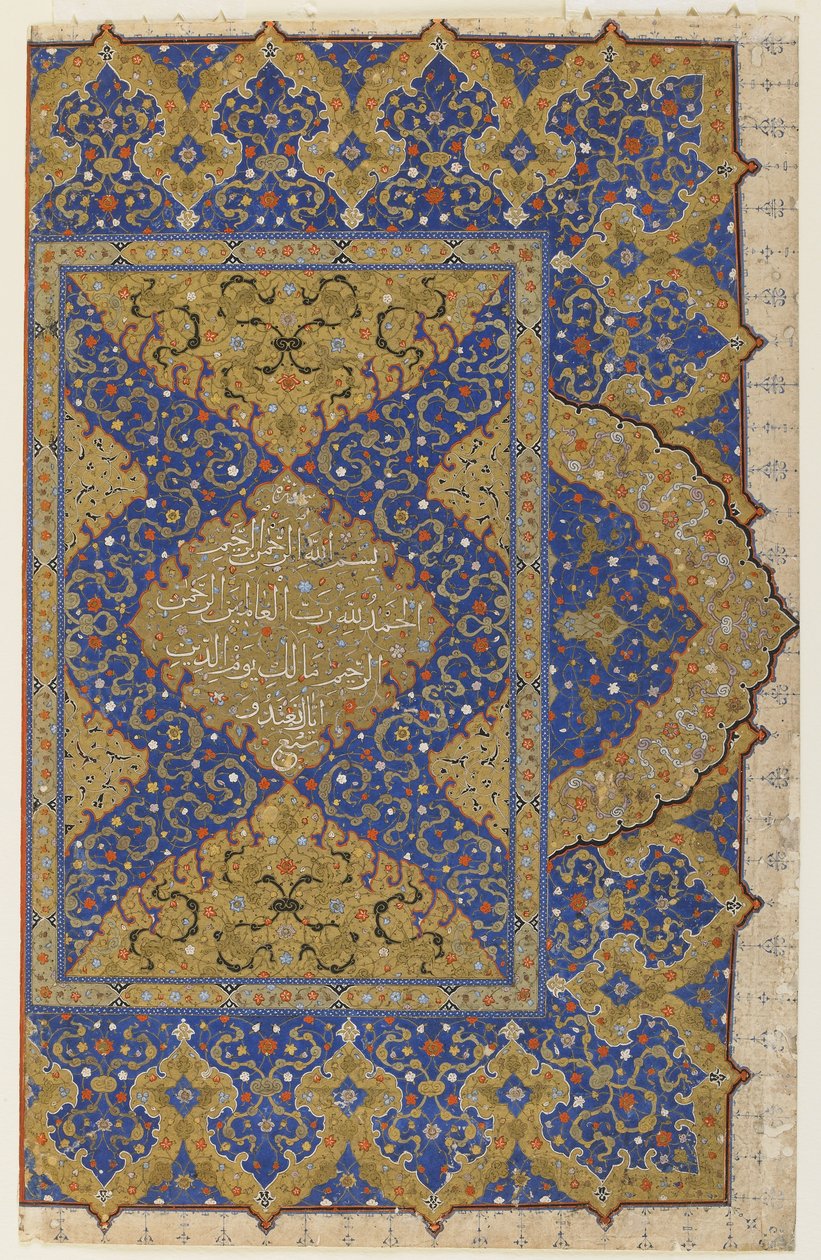 سورة
بِسْمِ اللَّهِ الرَّحْمَنِ الرَّحِيمِ
الْحَمْدُ لِلَّهِ رَبِّ الْعَالَمِينَ الرَّحْمَنِ
الرَّحِيمِ مَالِكِ يَوْمِ الدِّينِ
إِيَّاكَ نَعْبُدُ وَ
سبع